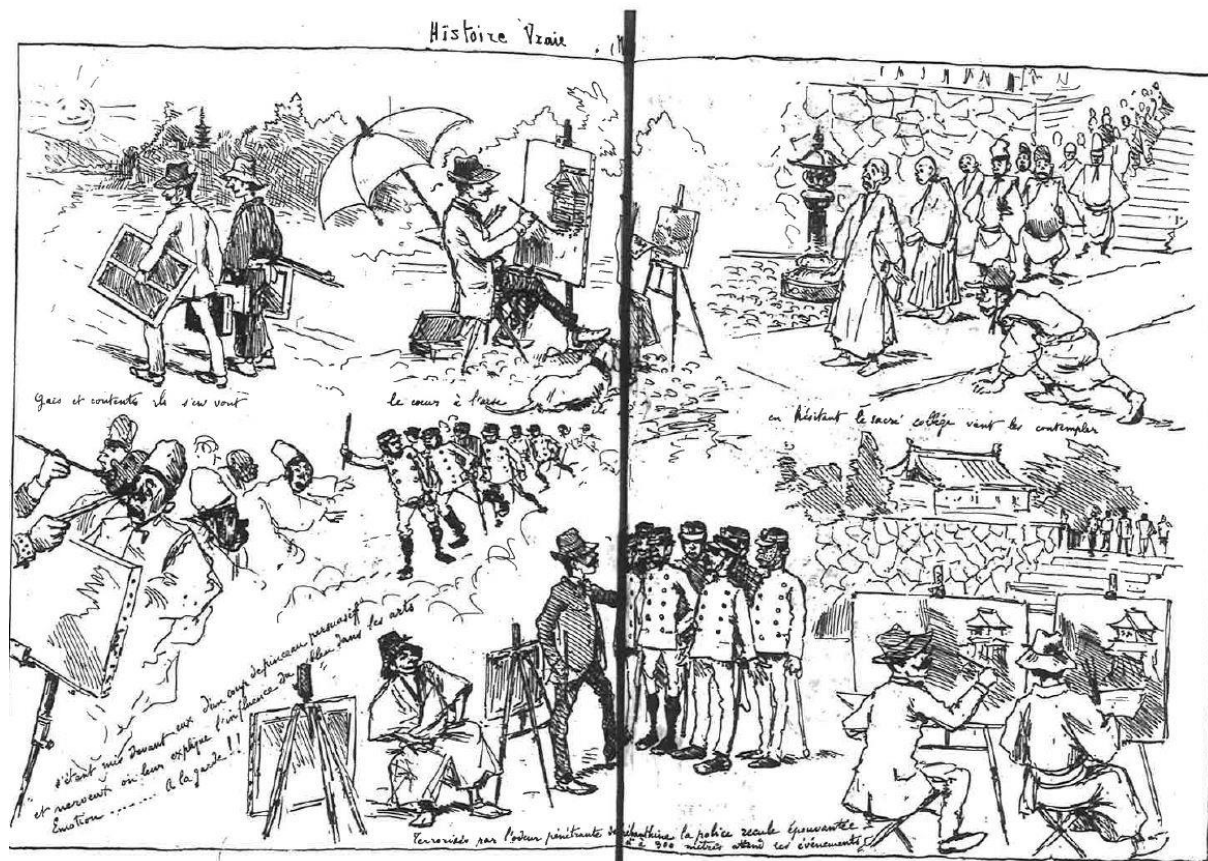 Histoire Vraie
Gais et contents ils s'en vont
le coeur à l'aise
en hésitant le sacré collège vient les contempler
s'étant mis devant eux d'un coup de pinceau persuasif
et nerveux on leur explique l'influence du bleu dans les arts
Emotion ........ A la garde !!
Terrorisée par l'odeur pénétrante de la police recule épouvantée
et à 900 mètres attend les événements